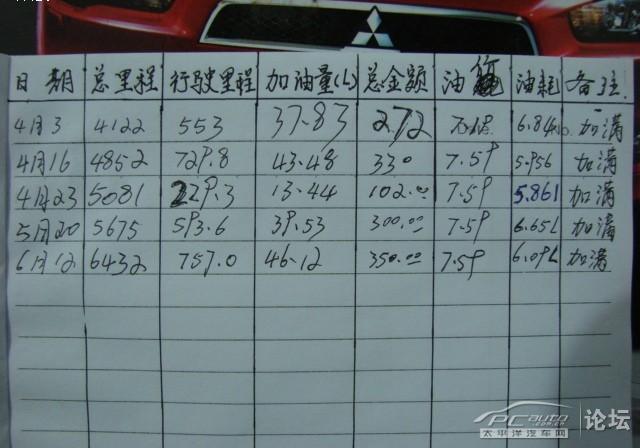 日期 总里程 行驶里程 加油量(L) 总金额 油 油耗 备注
4月3 4122 553 37.83 272 6.84 加满
4月16 4852 729.8 43.48 330 7.59 5.956 加满
4月23 5081 229.3 13.44 102.00 7.59 5.861 加满
5月20 5675 593.6 39.53 300.00 7.59 6.65L 加满
6月12 6432 757.0 46.12 350.00 7.59 6.09L 加满
PCauto 论坛
.com.cn
太平洋汽车网